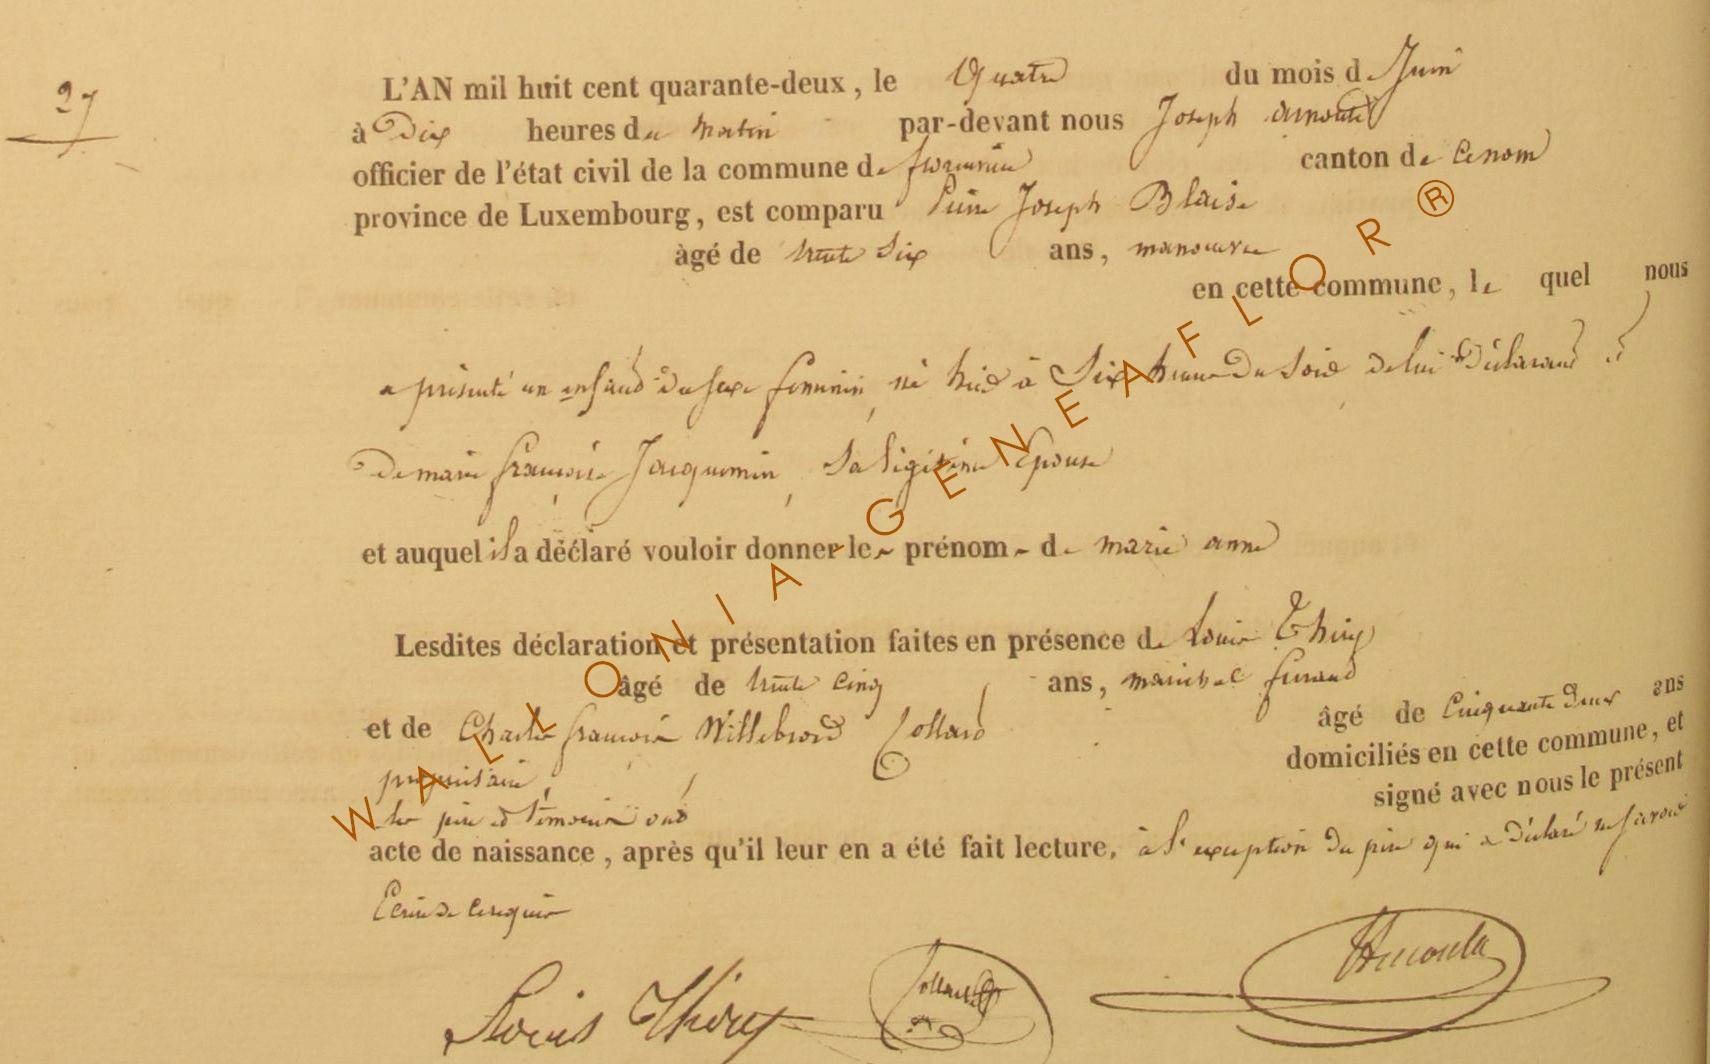 27
L'AN mil huit cent quarante-deux, le Quatre du mois de Juin
à Dix heures du Matin par-devant nous Joseph arnould
officier de l'état civil de la commune de canton de
province de Luxembourg, est comparu Pierre Joseph Blaise
àgé de trente six ans, manoeuvre
en cette commune, le quel nous
a présenté un enfand du sexe feminin, né hier à Six heures Du Soir de lui Déclarand et
De marie françoise Jacquemin, Sa légitime Epouse
et auquel il a déclaré vouloir donner les prénoms de marie anne
Lesdites déclaration et présentation faites en présence de Louis Thiry
âgé de trente cinq ans, marichal ferrand
et de Charles françois Willebrord Collard âgé de Cinquante deux ans
propriétaire, domiciliés en cette commune, et
les père et témoins ont signé avec nous le présent
acte de naissance, après qu'il leur en a été fait lecture, à l'exception du père qui a déclaré ne savoir
Ecrire de ce requis
Louis Thiry Collard HArnould
WALLONIA-GENEAFLOR®